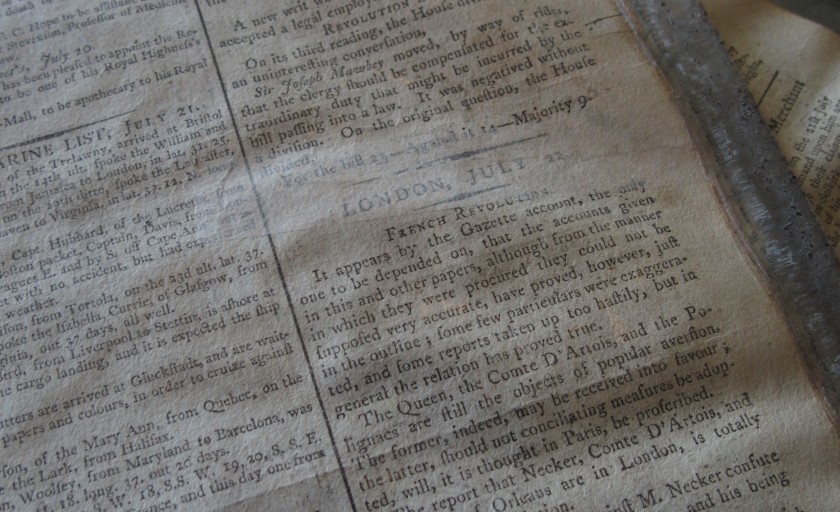 C. Hope to be assistant
Stevenson, Professor of Medicine
July 20.
has been pleased to appoint the Re-
to be one of his Royal Highness's
Mall, to be apothecary to his Royal
ARINE LIST, JULY 21.
of the Trelawny, arrived at Bristol
the 14th ult. spoke the William and
from Jamaica to London, in lat. 31. 25.
on the 19th ditto, spoke the
to Virginia, in lat. 37. 12. N.
Capt. Hubbard, of the Lucretia, from
Boston packet, Captain Davis, from
leagues E. and by S. off Cape
with no accident, but had
weather.
from Tortola, on the 23d ult. lat. 37.
spoke the Isabella, Currie, of Glasgow, from
out 37 days, all well.
from Liverpool to Stettin, is ashore at
cargo landing, and it is expected the ship
are arrived at Gluckstadt, and are wait-
papers and colours, in order to cruize against
son, of the Mary Ann, from Quebec, on the
the Lark, from Halifax.
Woolsey, from Maryland to Barcelona, was
18. long. 37. out 26 days.
S. W. 18, S.S. W. 19, 20, S. S. E.
and this day one from
A new writ w
accepted a legal employ
REVOLUTION
On its third reading, the House
an uninteresting conversation,
Sir Joseph Mawbey moved, by way of rider,
that the clergy ſhould be compenſated for the ex-
traordinary duty that might be incurred by the
bill paſſing into a law. It was negatived without
a diviſion. On the original queſtion, the Houſe
divided,
For the bill 23—Againſt it 14—Majority 9.
LONDON, JULY 22.
FRENCH REVOLUTION.
It appears by the Gazette account, the only
one to be depended on, that the accounts given
in this and other papers, although from the manner
in which they were procured they could not be
ſuppoſed very accurate, have proved, however, juſt
in the outline; ſome few particulars were exaggera-
ted, and ſome reports taken up too haſtily, but in
general the relation has proved true.
The Queen, the Comte D'Artois, and the Po-
lignacs are ſtill the objects of popular averſion.
The former, indeed, may be received into favour;
the latter, ſhould not conciliating meaſures be adop-
ted, will, it is thought in Paris, be proſcribed.
The report that Necker, Comte D'Artois, and
Orleans are in London, is totally
M. Necker confute
and his being
Merchant